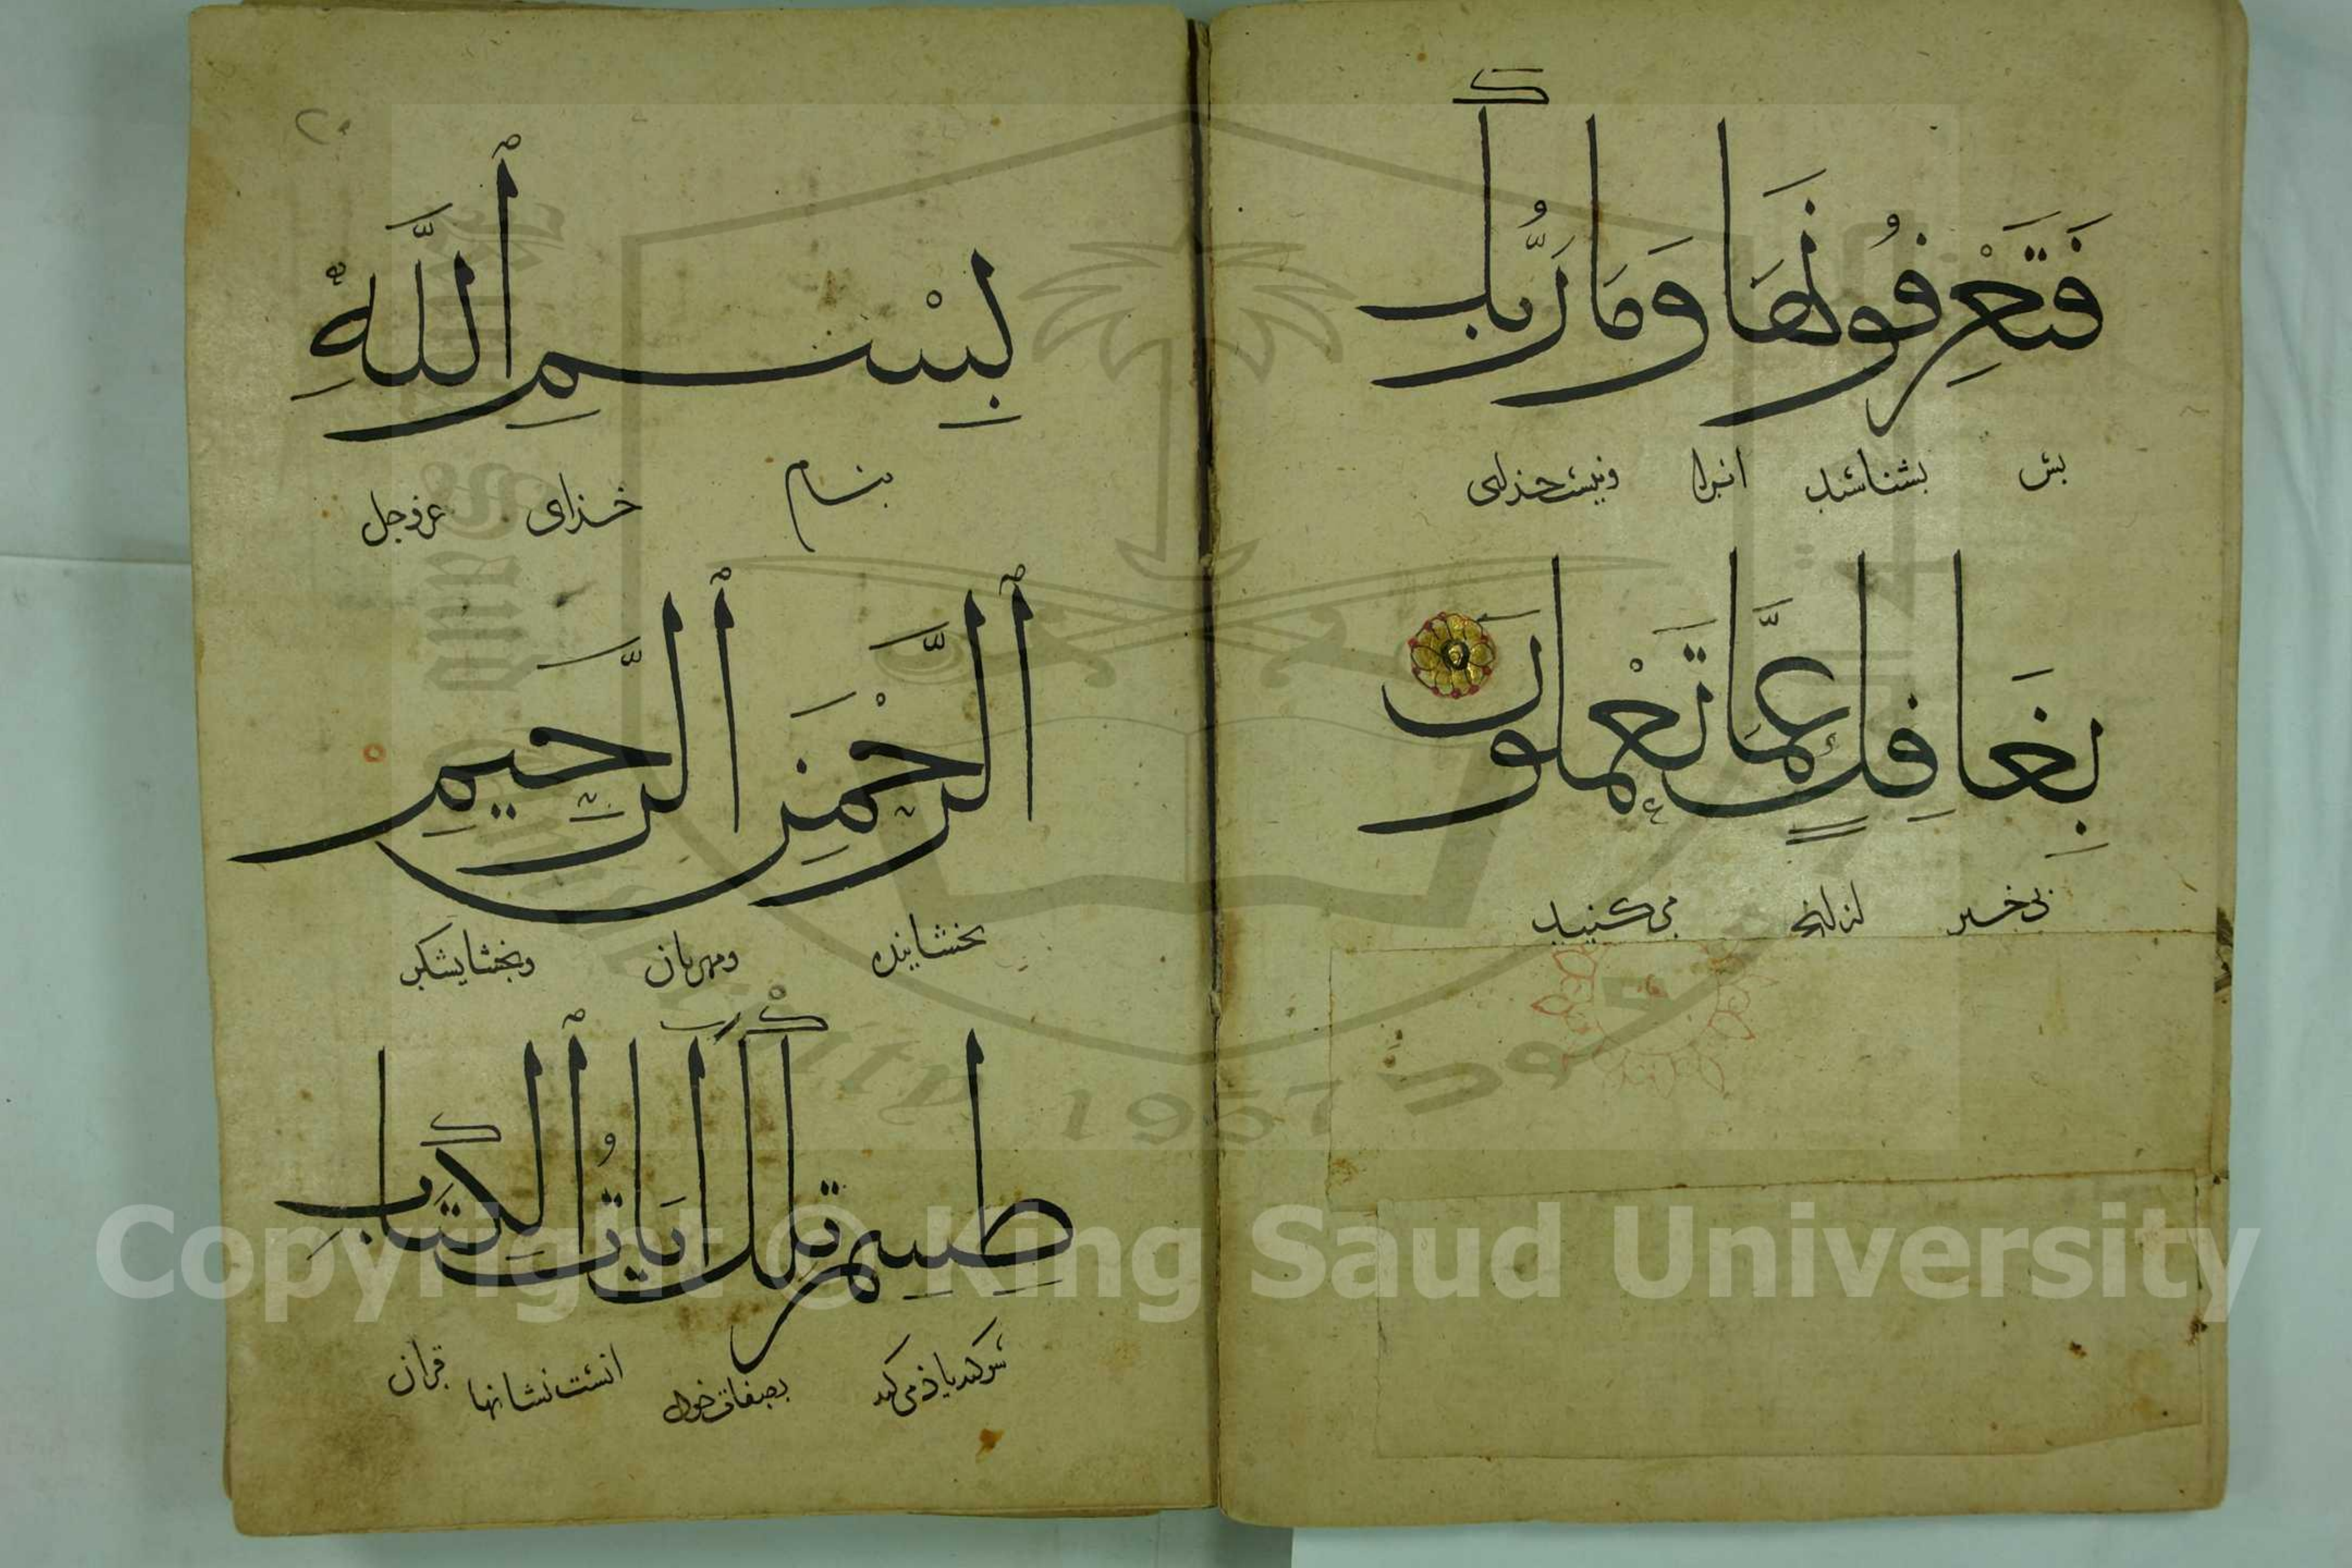 فَتَعْرِفُونَهَا وَمَا رَبُّكَ
بس بشناسید انرا ونیست خذای
بِغَافِلٍ عَمَّا تَعْمَلُونَ
بی خبر از انچه می کنید
بِسْمِ ٱللَّهِ
بنام خذای عز وجل
ٱلرَّحْمَنِ ٱلرَّحِيمِ
بخشاینده ومهربان وبخشایشکر
طسم تِلْكَ اٰيَاتُ ٱلْكِتَابِ
سوکند یاذ می کند بصفات خوذ اینست نشانها قران
Copyright © King Saud University
1957